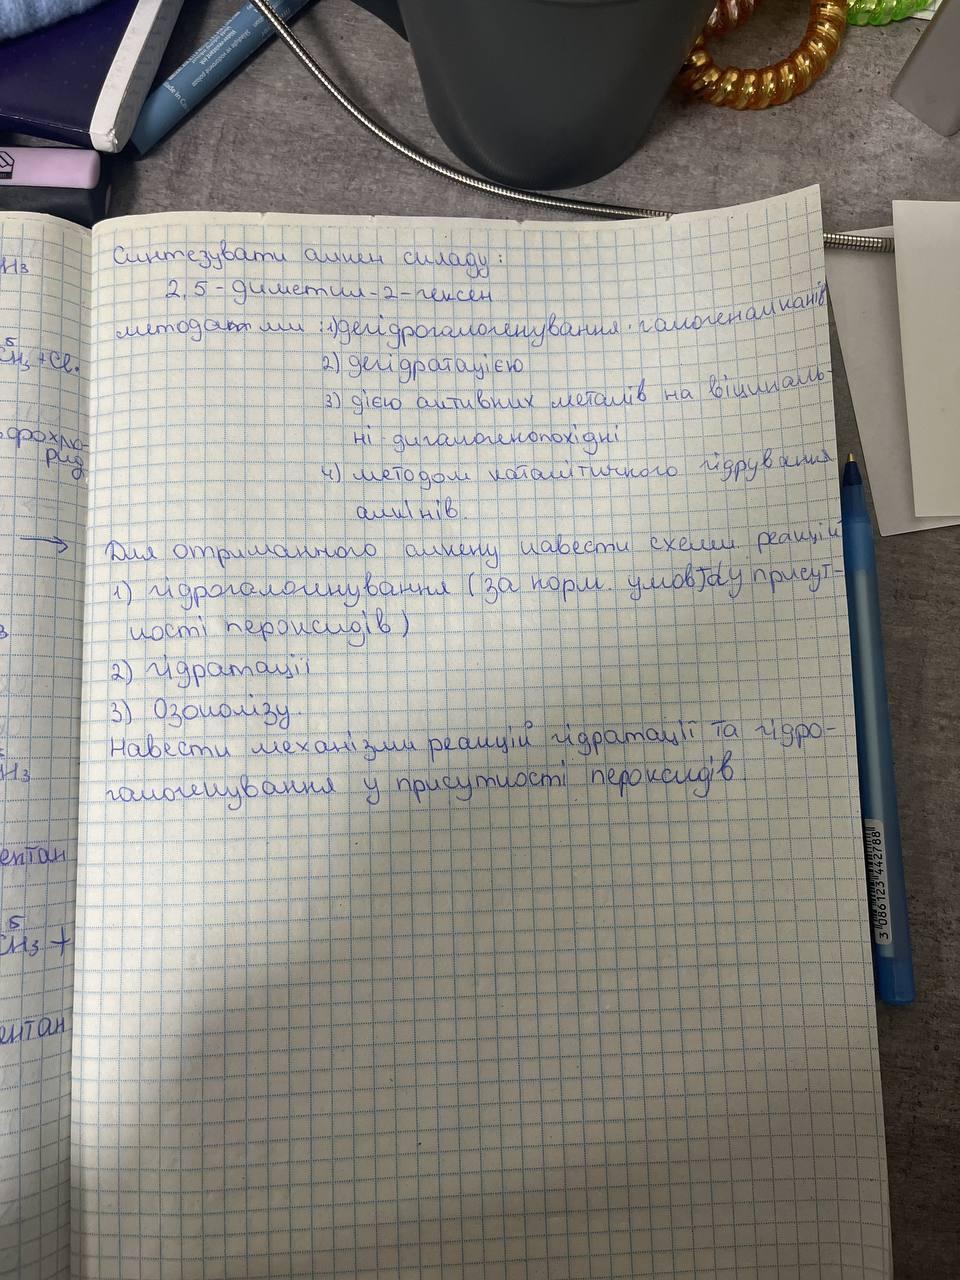 Синтезувати алкен складу:
2,5-диметил-2-гексен
методами: 1) дегідрогалогенування галогеналканів
2) дегідратацією
3) дією активних металів на віциналь-
ні дигалогенопохідні
4) методом каталітичного гідрування
алкінів.
Для отриманного алкену навести схеми реакцій
1) гідрогалогенування (за норм. умов) у присут-
ності пероксидів)
2) гідратації
3) Озонолізу.
Навести механізми реакцій гідратації та гідро-
галогенування у присутності пероксидів
H₃
5
CH₃ + Cl.
дрохло-
рид
→
H₃
ентан
5
CH₃ +
ентан
3 086123 442788